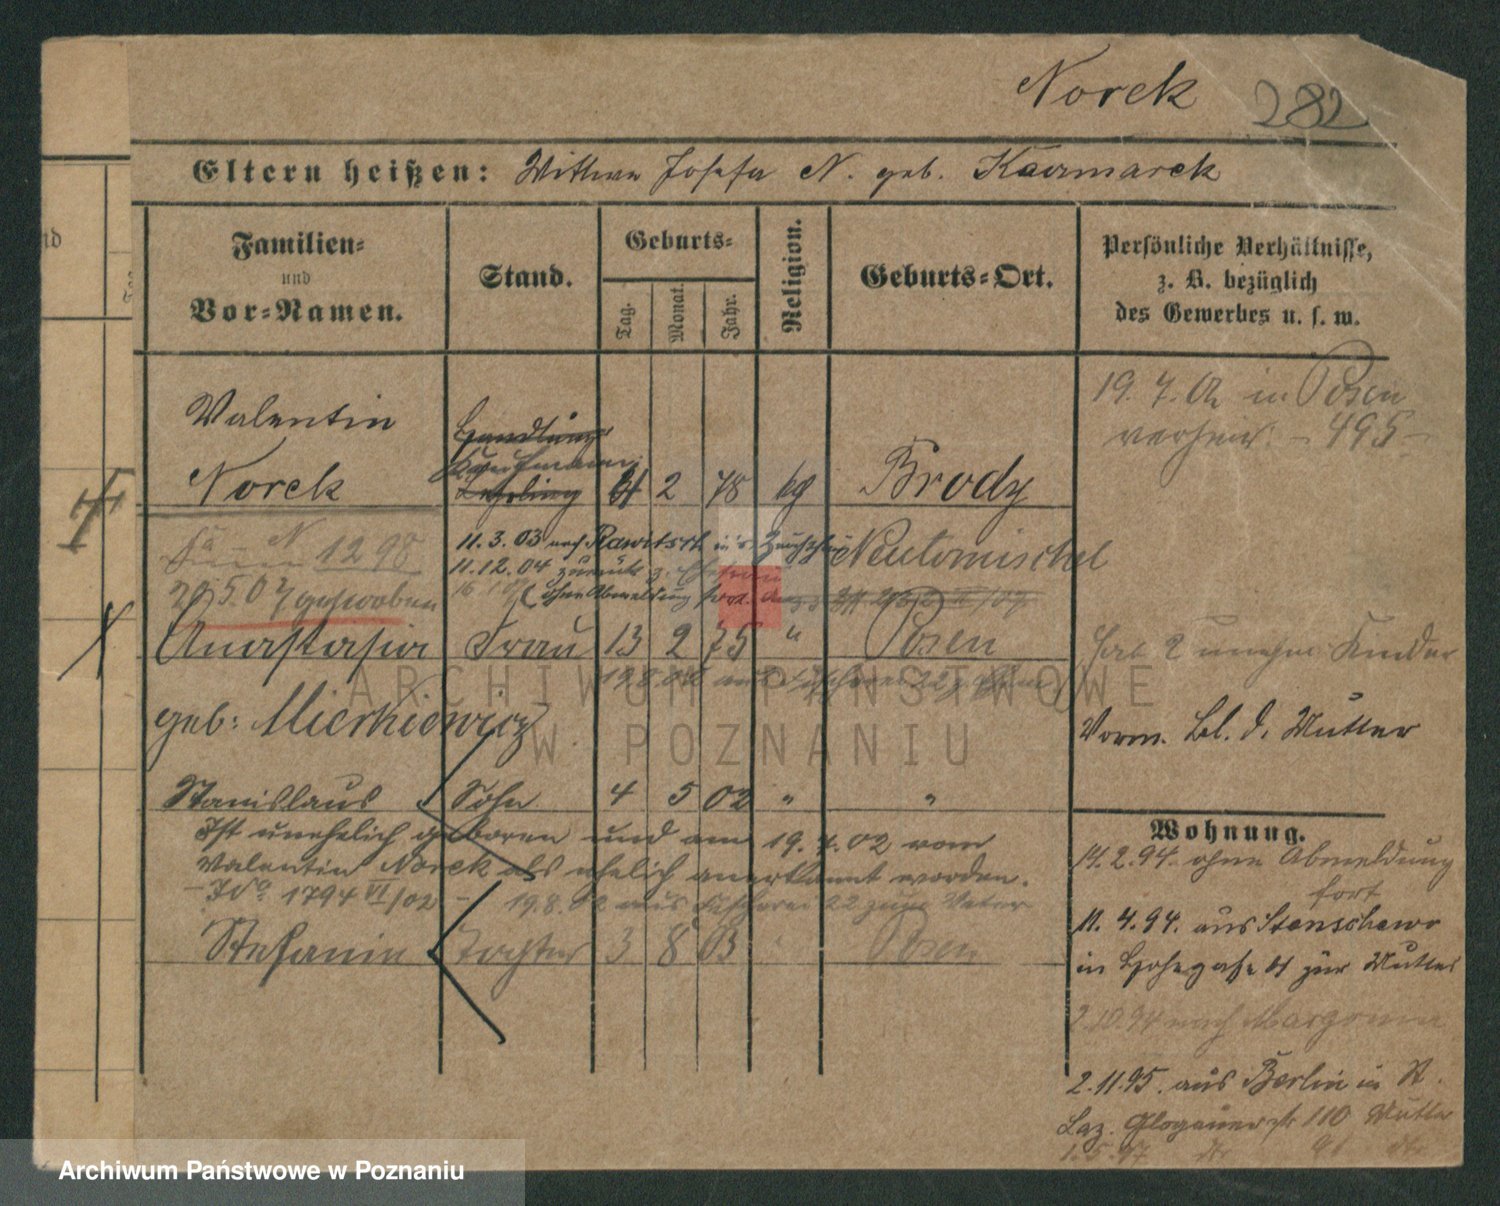 Norek 282
Eltern heißen: Wittwe Josefa N. geb. Kaczmarek
Familien-
und
Vor-Namen.
Stand.
Geburts-
Tag.
Monat.
Jahr.
Religion.
Geburts-Ort.
Persönliche Verhältnisse,
z. B. bezüglich
des Gewerbes u. s. w.
19. 7. 02 in Posen
verheir. - 495 -
Valentin
Norek
Handlungs
Kaufmann
Lehrling
2 78 kg Brody
N 1298
11.3.03 nach Rawitsch in's Zuchthaus Neutomischel
11.12.04 zurück z. Ehefrau
ohne Abmeldung fort.
gestorben
Anastasia Frau 13 2 75 " Posen
geb: Mierkiewicz
19.8.02 aus Fischerei 22
Hat 2 unehel Kinder
Vorm. Bl. d. Mutter
Stanislaus Sohn 4 5 02 " "
Ist unehelich geboren und am 19.7.02 vom
Valentin Norek als ehelich anerkannt worden.
- No 1794 VI/02 - 19.8.02 aus Fischerei 22 zum Vater
Stefanie Tochter 3 8 03 Posen
Wohnung.
14.2.94. ohne Abmeldung
fort
11. 4.94. aus Stenschewo
in zur Mutter
2.10.94 nach Margonin
2.11.95. aus Berlin in St.
Laz. Glogauerstr 110 Mutter
ARCHIWUM PAŃSTWOWE
W POZNANIU
Archiwum Państwowe w Poznaniu